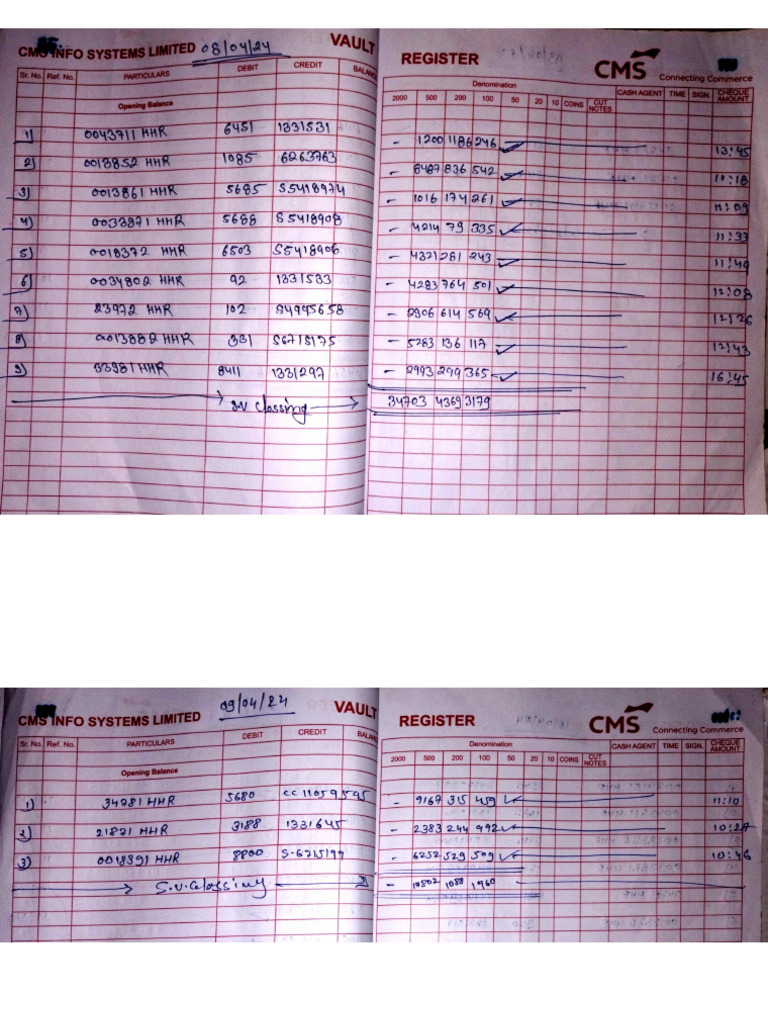 CMS INFO SYSTEMS LIMITED 08/04/24 VAULT REGISTER CMS Connecting Commerce
Sr. No. Ref. No. PARTICULARS DEBIT CREDIT BALANC Denomination CASH AGENT TIME SIGN. CHEQUE AMOUNT
2000 500 200 100 50 20 10 COINS CUT NOTES
Opening Balance
1) 0043711 HHR 6451 1331531 - 1200 1186 246 13:45
2) 0013852 HHR 1085 6263763 - 8487 836 542 10:18
3) 0013861 HHR 5685 S5418974 - 1016 174 261 11:09
4) 0033871 HHR 5688 S5418908 - 4214 79 335 11:33
5) 0018372 HHR 6503 S5418906 - 4321 281 243 11:49
6) 0034802 HHR 92 1331533 - 4283 764 501 12:08
7) 23972 HHR 102 S4995658 - 2906 614 569 12:26
8) 0013882 HHR 331 S6718175 - 5283 136 117 12:43
9) 33981 HHR 8411 1331297 - 2993 299 365 16:45
S.V Clossing 34703 4369 3179
CMS INFO SYSTEMS LIMITED 09/04/24 VAULT REGISTER CMS Connecting Commerce
Sr. No. Ref. No. PARTICULARS DEBIT CREDIT BALANC Denomination CASH AGENT TIME SIGN. CHEQUE AMOUNT
2000 500 200 100 50 20 10 COINS CUT NOTES
Opening Balance
1) 34781 HHR 5680 CC11059595 - 9167 315 459 11:10
2) 21871 HHR 3188 1331645 - 2383 244 992 10:27
3) 0018391 HHR 8800 S-6715197 - 6252 529 509 10:46
S.V.Clossing - 17802 1088 1960